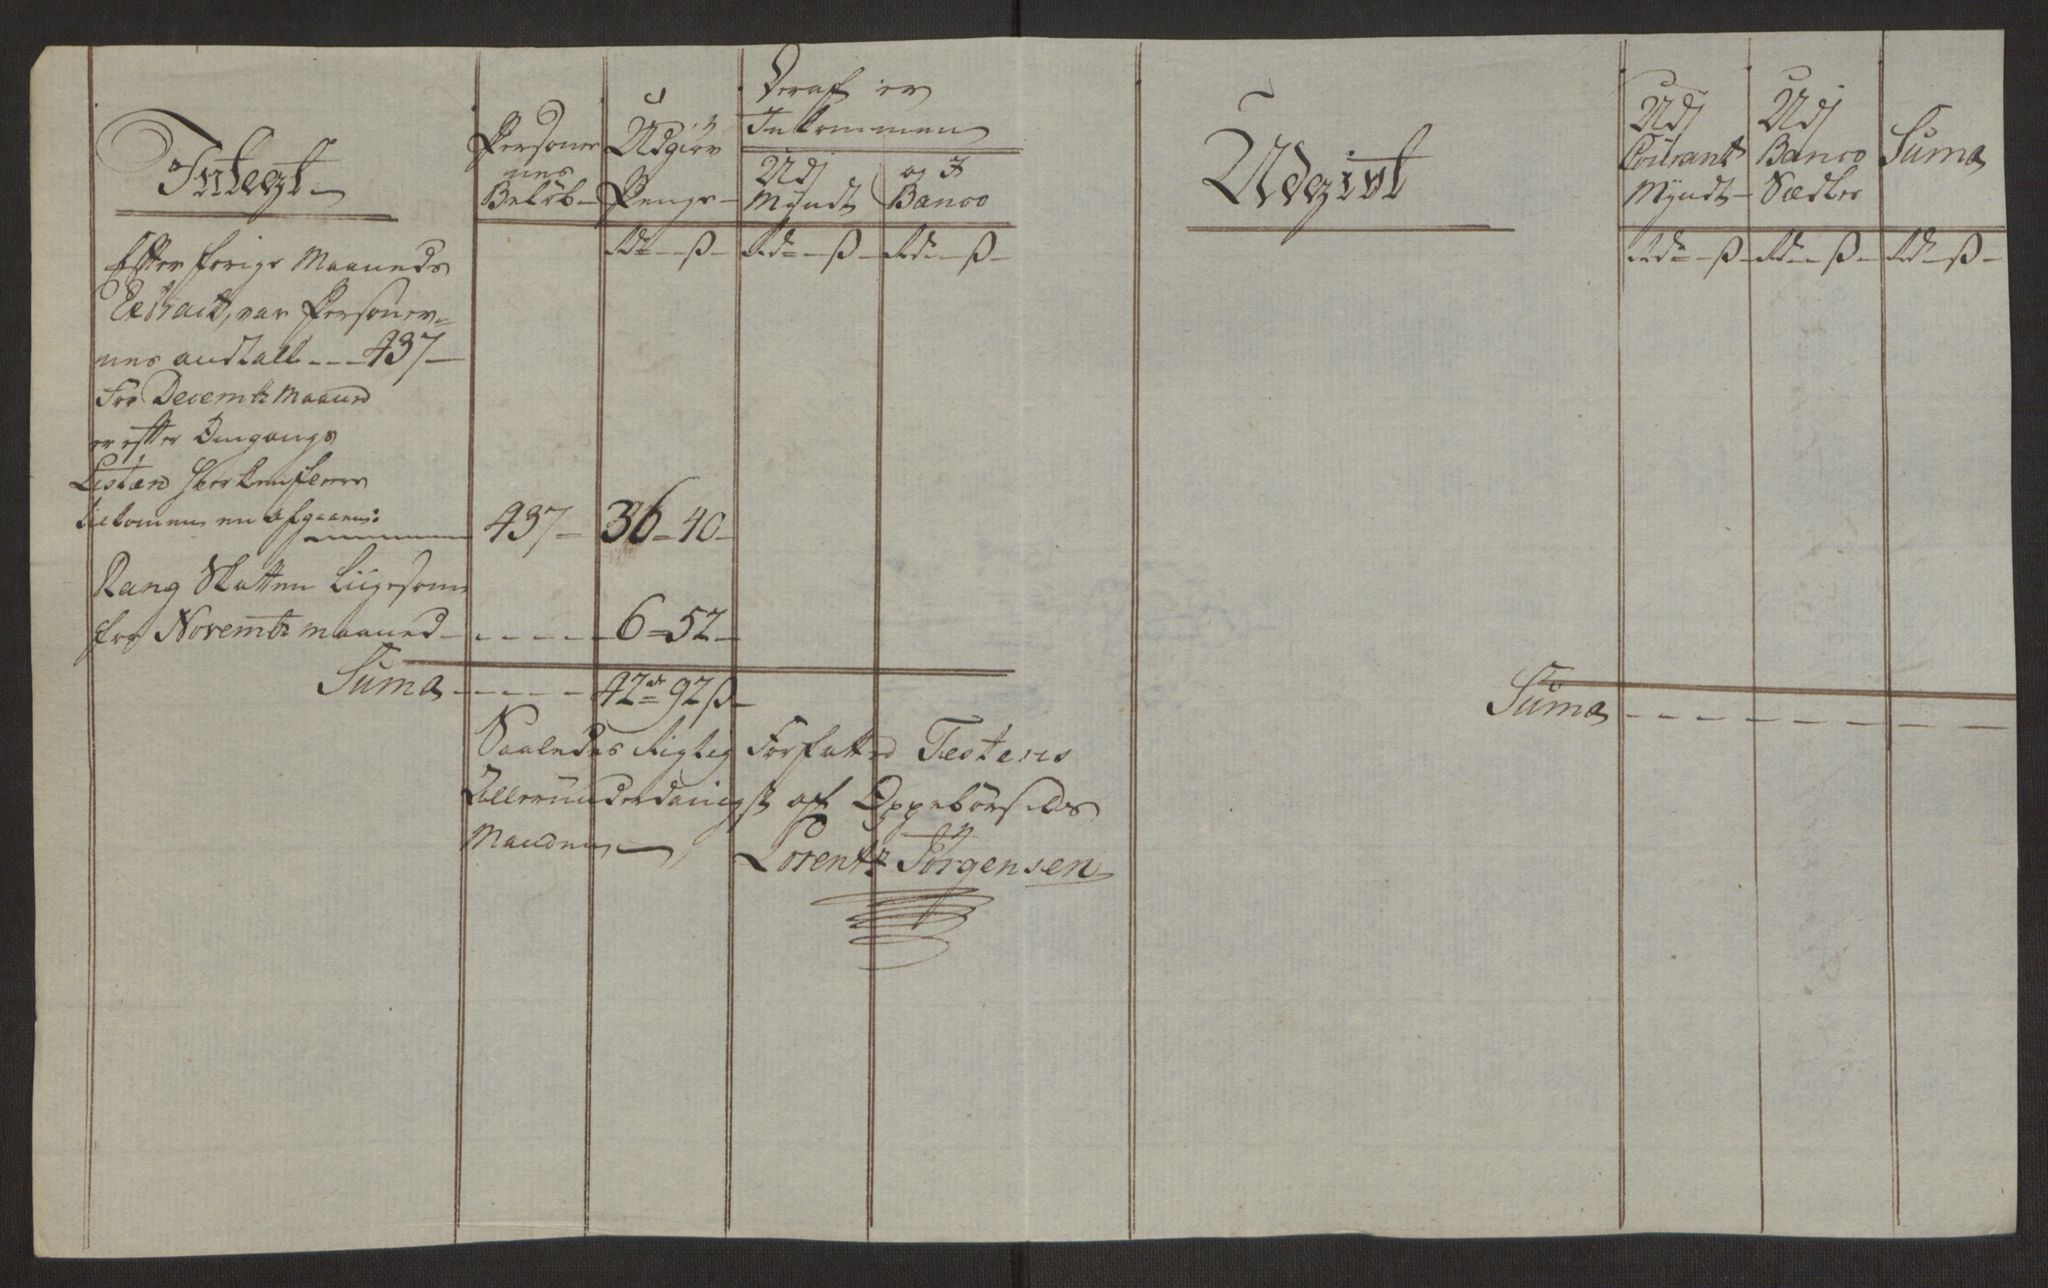 Integt
Personer
nes
Beløb
Udgiør
Penge
Deraf er
Inkommen
Udj
Myndt
og I
Banco
Rd ß
Rd ß
Rd ß
Efter forige Maaneds
Extract, var Personer=
nes andtall --- 437
For Decembr Maaned
er efter Omgangs
Listen hverken fleere
tilkommen en afgaaen: 437 36 40
Rang Skatten liigesom
for Novembr maaned ----- 6 52
Suma ----- 42 rd 92 ß
Saaledes rigtig Forfatted Testeris
Alleründerdanigst af Oppebørsels
Manden
Lorentz Jörgensen
Udgivt
Udj
Courant
Myndt
Udj
Banco
Sædler
Suma
Rd ß
Rd ß
Rd ß
Suma